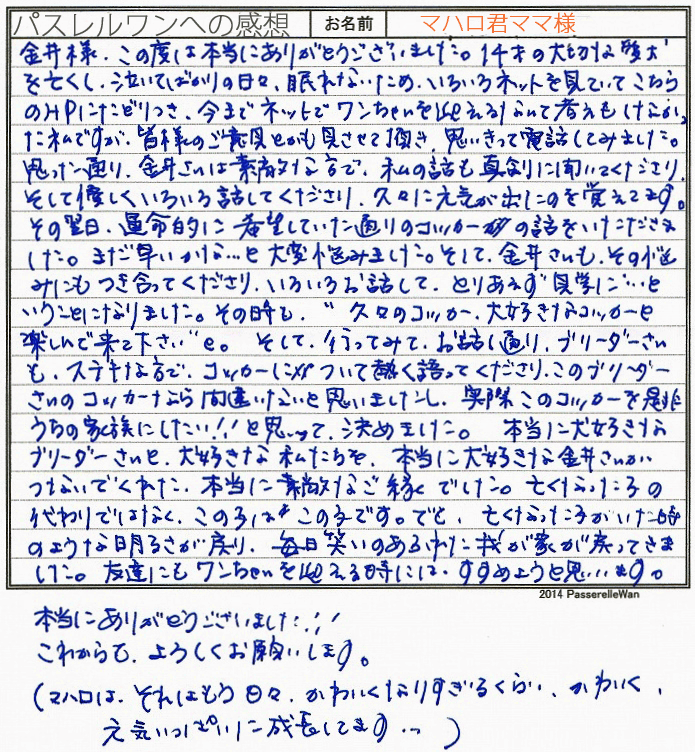 パスレルワンへの感想 お名前 マハロ君ママ様
金井様、この度は本当にありがとうございました。14才の大切な愛犬
を亡くし、泣いてばかりの日々、眠れないため、いろいろネットを見ていてこちら
のHPにたどりつき、今までネットでワンちゃんを迎えるなんて考えもしなかっ
た私ですが、皆様のご意見とかも見させて頂き、思いきって電話してみました。
思った通り、金井さんは素敵な方で、私の話も真剣に聞いてくださり
そして優しくいろいろ話してくださり、久々に元気が出たのを覚えてます。
その翌日、運命的に希望していた通りのコッカーの話をいただきま
した。まだ早いかな…と大変悩みました。そして、金井さんも、その悩
みにもつき合ってくださり、いろいろお話して、とりあえず見学に…と
いうことになりました。その時も、"久々のコッカー、大好きなコッカーを
楽しんで来て下さい"と。そして、行ってみて、お話し通り、ブリーダーさん
も、ステキな方で、コッカーについて熱く語ってくださり、このブリーダー
さんのコッカーなら間違いないと思いましたし、実際このコッカーを是非
うちの家族にしたい!!と思って、決めました。 本当に犬好きな
ブリーダーさんと、犬好きな私たちを、本当に犬好きな金井さんが
つないでくれた、本当に素敵なご縁でした。亡くなった子の
代わりではなく、この子はこの子です。でも、亡くなった子がいた時
のような明るさが戻り、毎日笑いのあふれた我が家が戻ってきま
した。友達にもワンちゃんを迎える時には、すすめようと思います。
2014 PasserelleWan
本当にありがとうございました!!!
これからも、よろしくお願いします。
(マハロは、それはもう日々、かわいくなりすぎるくらい、かわいく、
元気いっぱいに成長してます…)